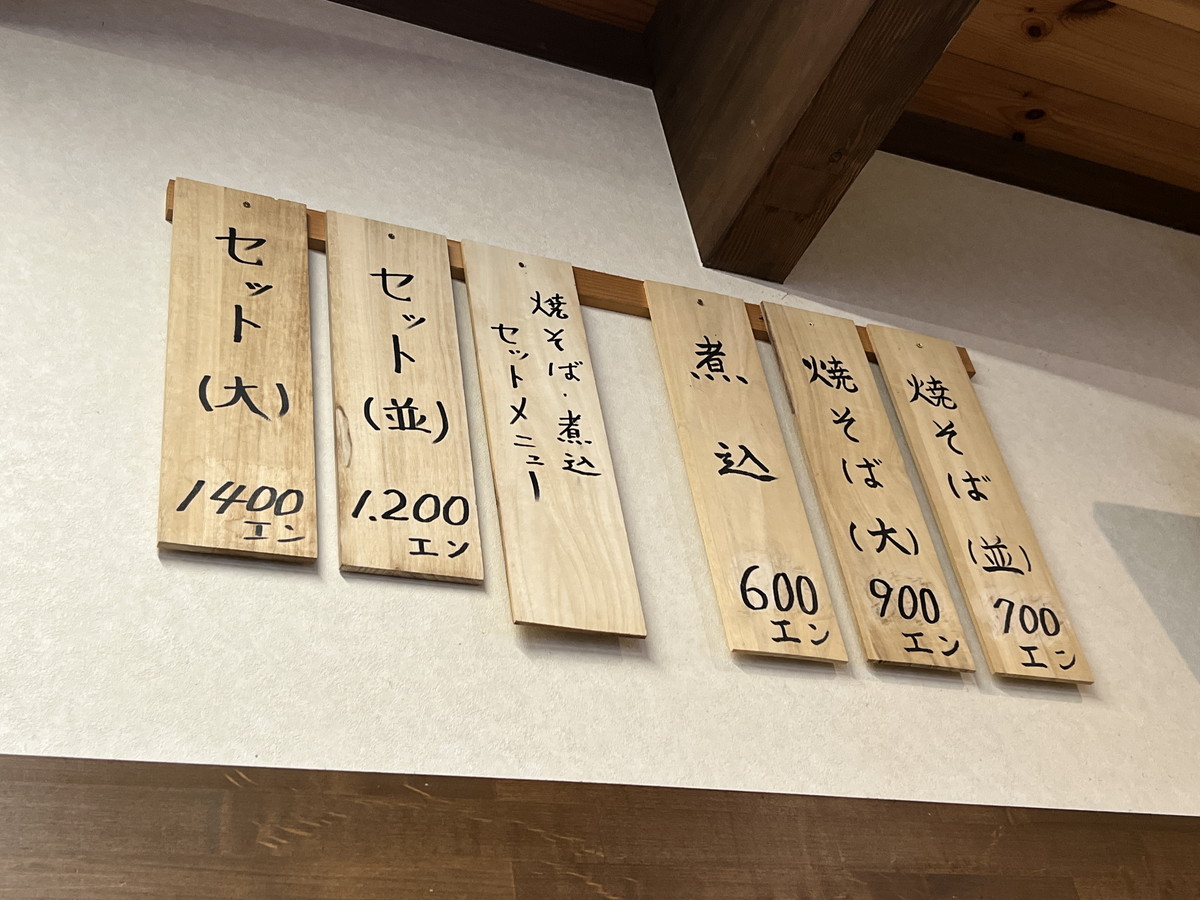 焼そば
(並)
700
エン
焼そば
(大)
900
エン
煮込
600
エン
焼そば・煮込
セットメニュー
セット
(並)
1.200
エン
セット
(大)
1400
エン